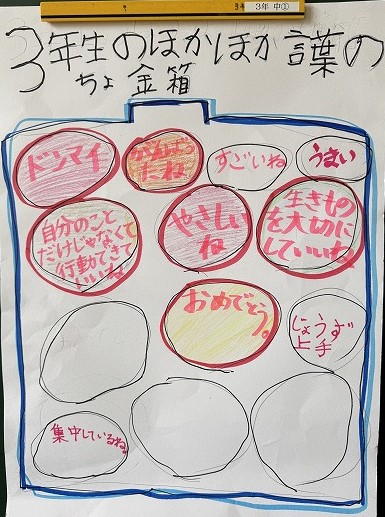 3年 中①
3年生のほかほか言葉の
ちょ金箱
ドンマイ
がんばっ
たね
すごいね
うまい
自分のこと
だけじゃなくて
行動できて
いいね
やさしい
ね
生きもの
を大切に
していいね
おめでとう。
じょうず
上手
集中しているね。